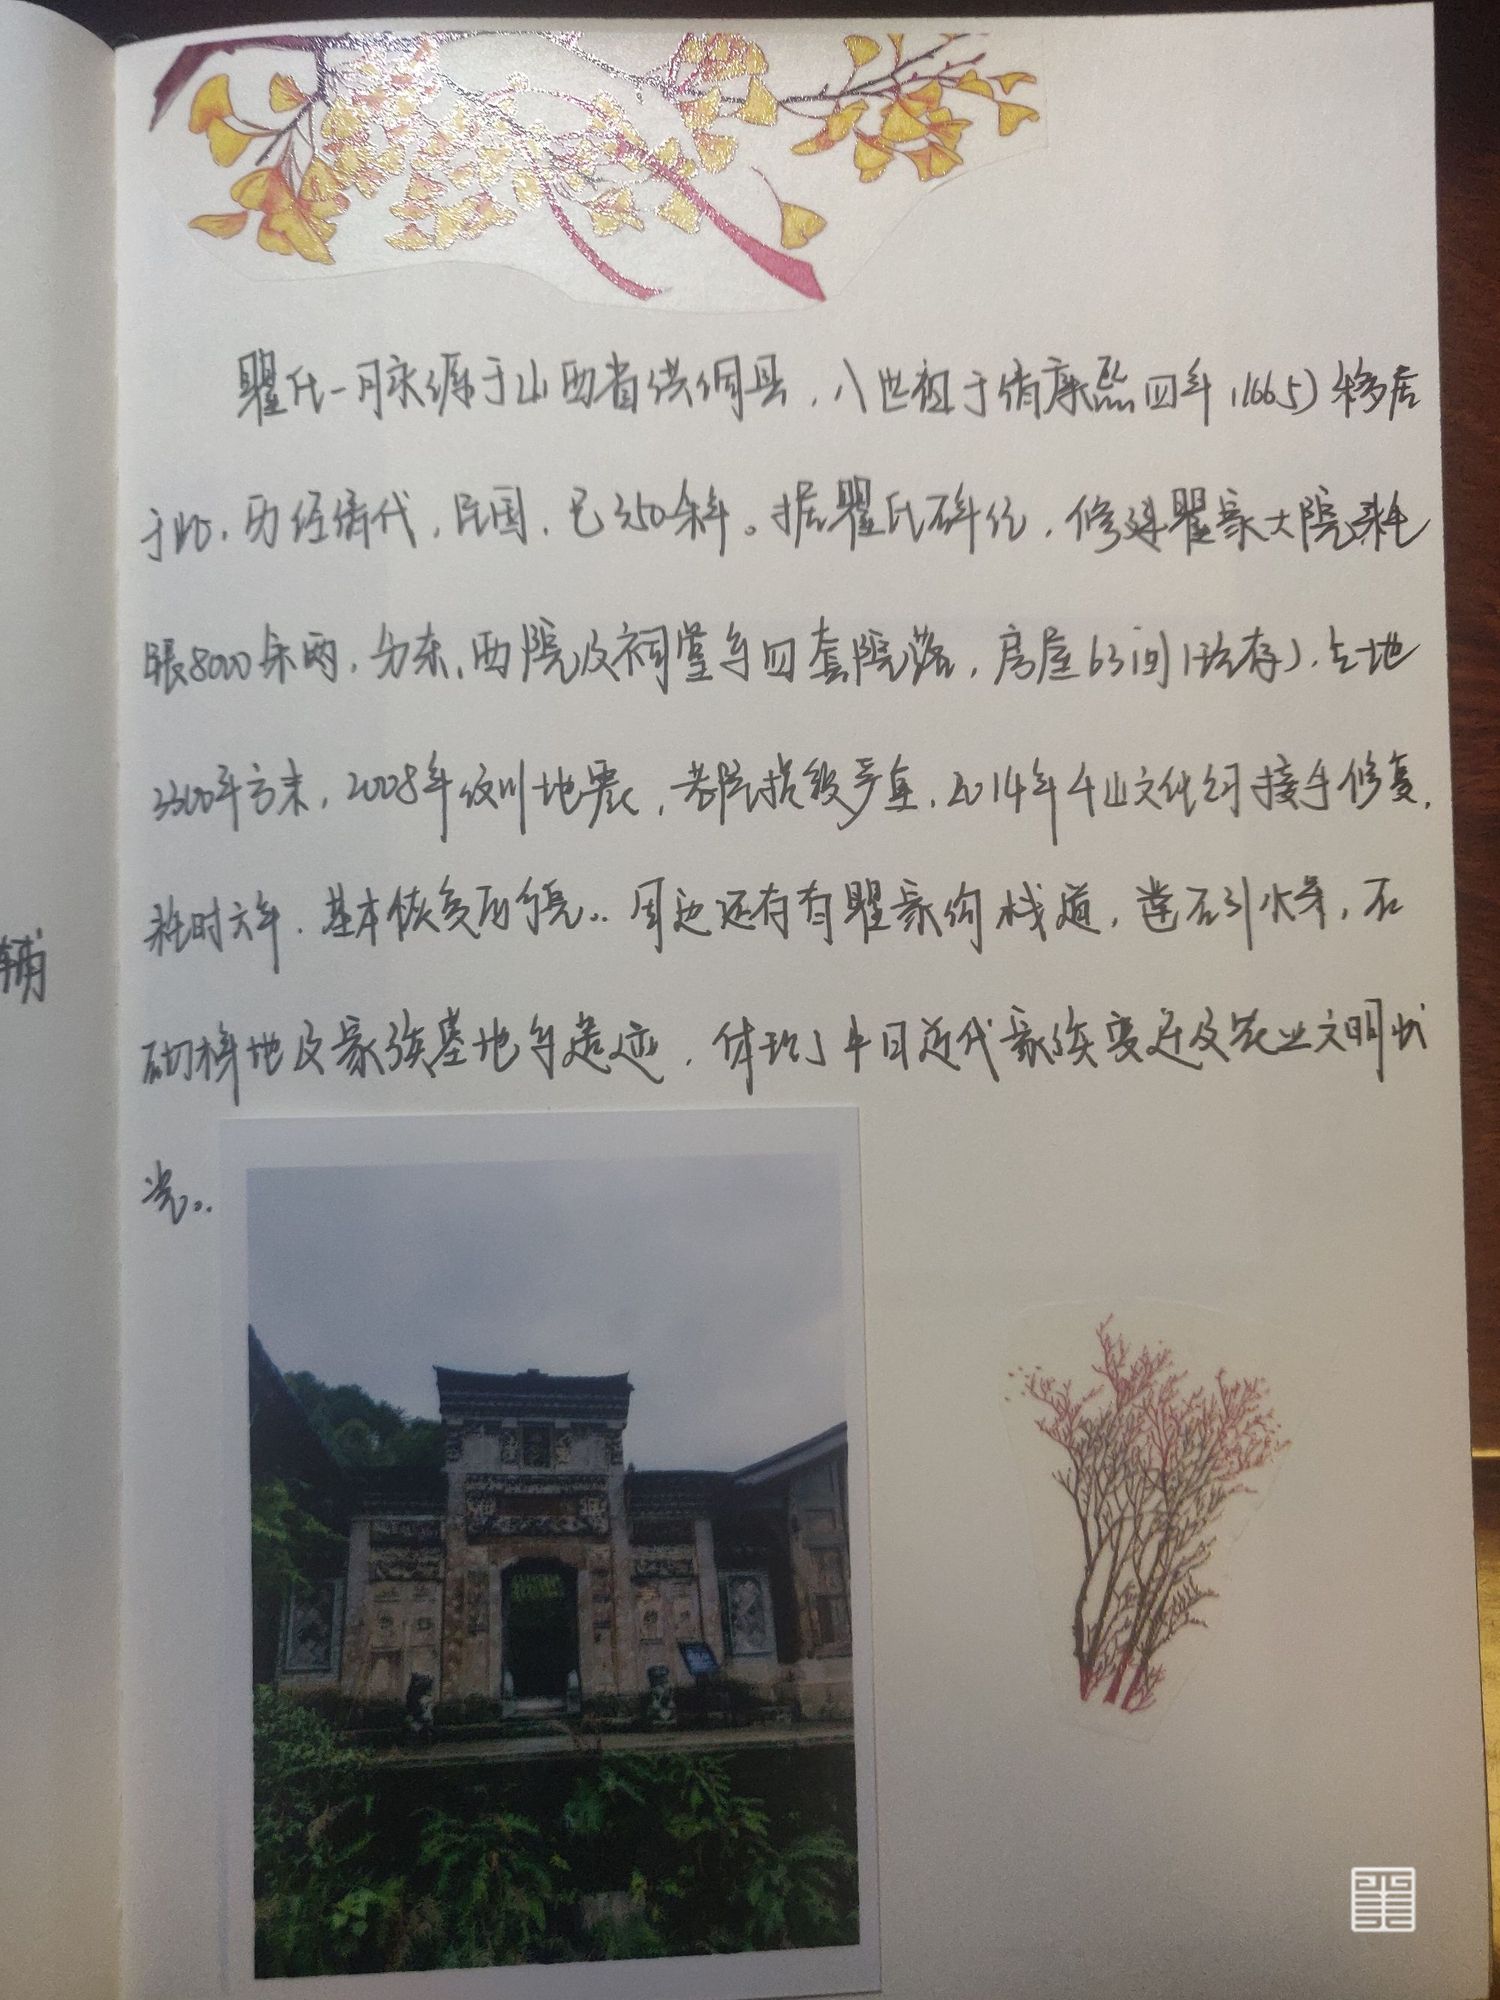 瞿氏一脉源于山西省洪洞县，八世祖于清康熙四年（1665）移居
于此，历经清代，民国，已350余年。据瞿氏碑纪，修建瞿家大院耗
银8000余两，分东、西院及祠堂等四套院落，房屋63间（现存），占地
3300平方米，2008年汶川地震，老院损毁严重，2014年 山文化 接手修复，
耗时六年，基本恢复原貌。周边还存有瞿家 栈道，凿石引水渠，石
砌梯地及家族墓地等遗迹，体现了 近代家族变迁及农业文明状
况。
辅